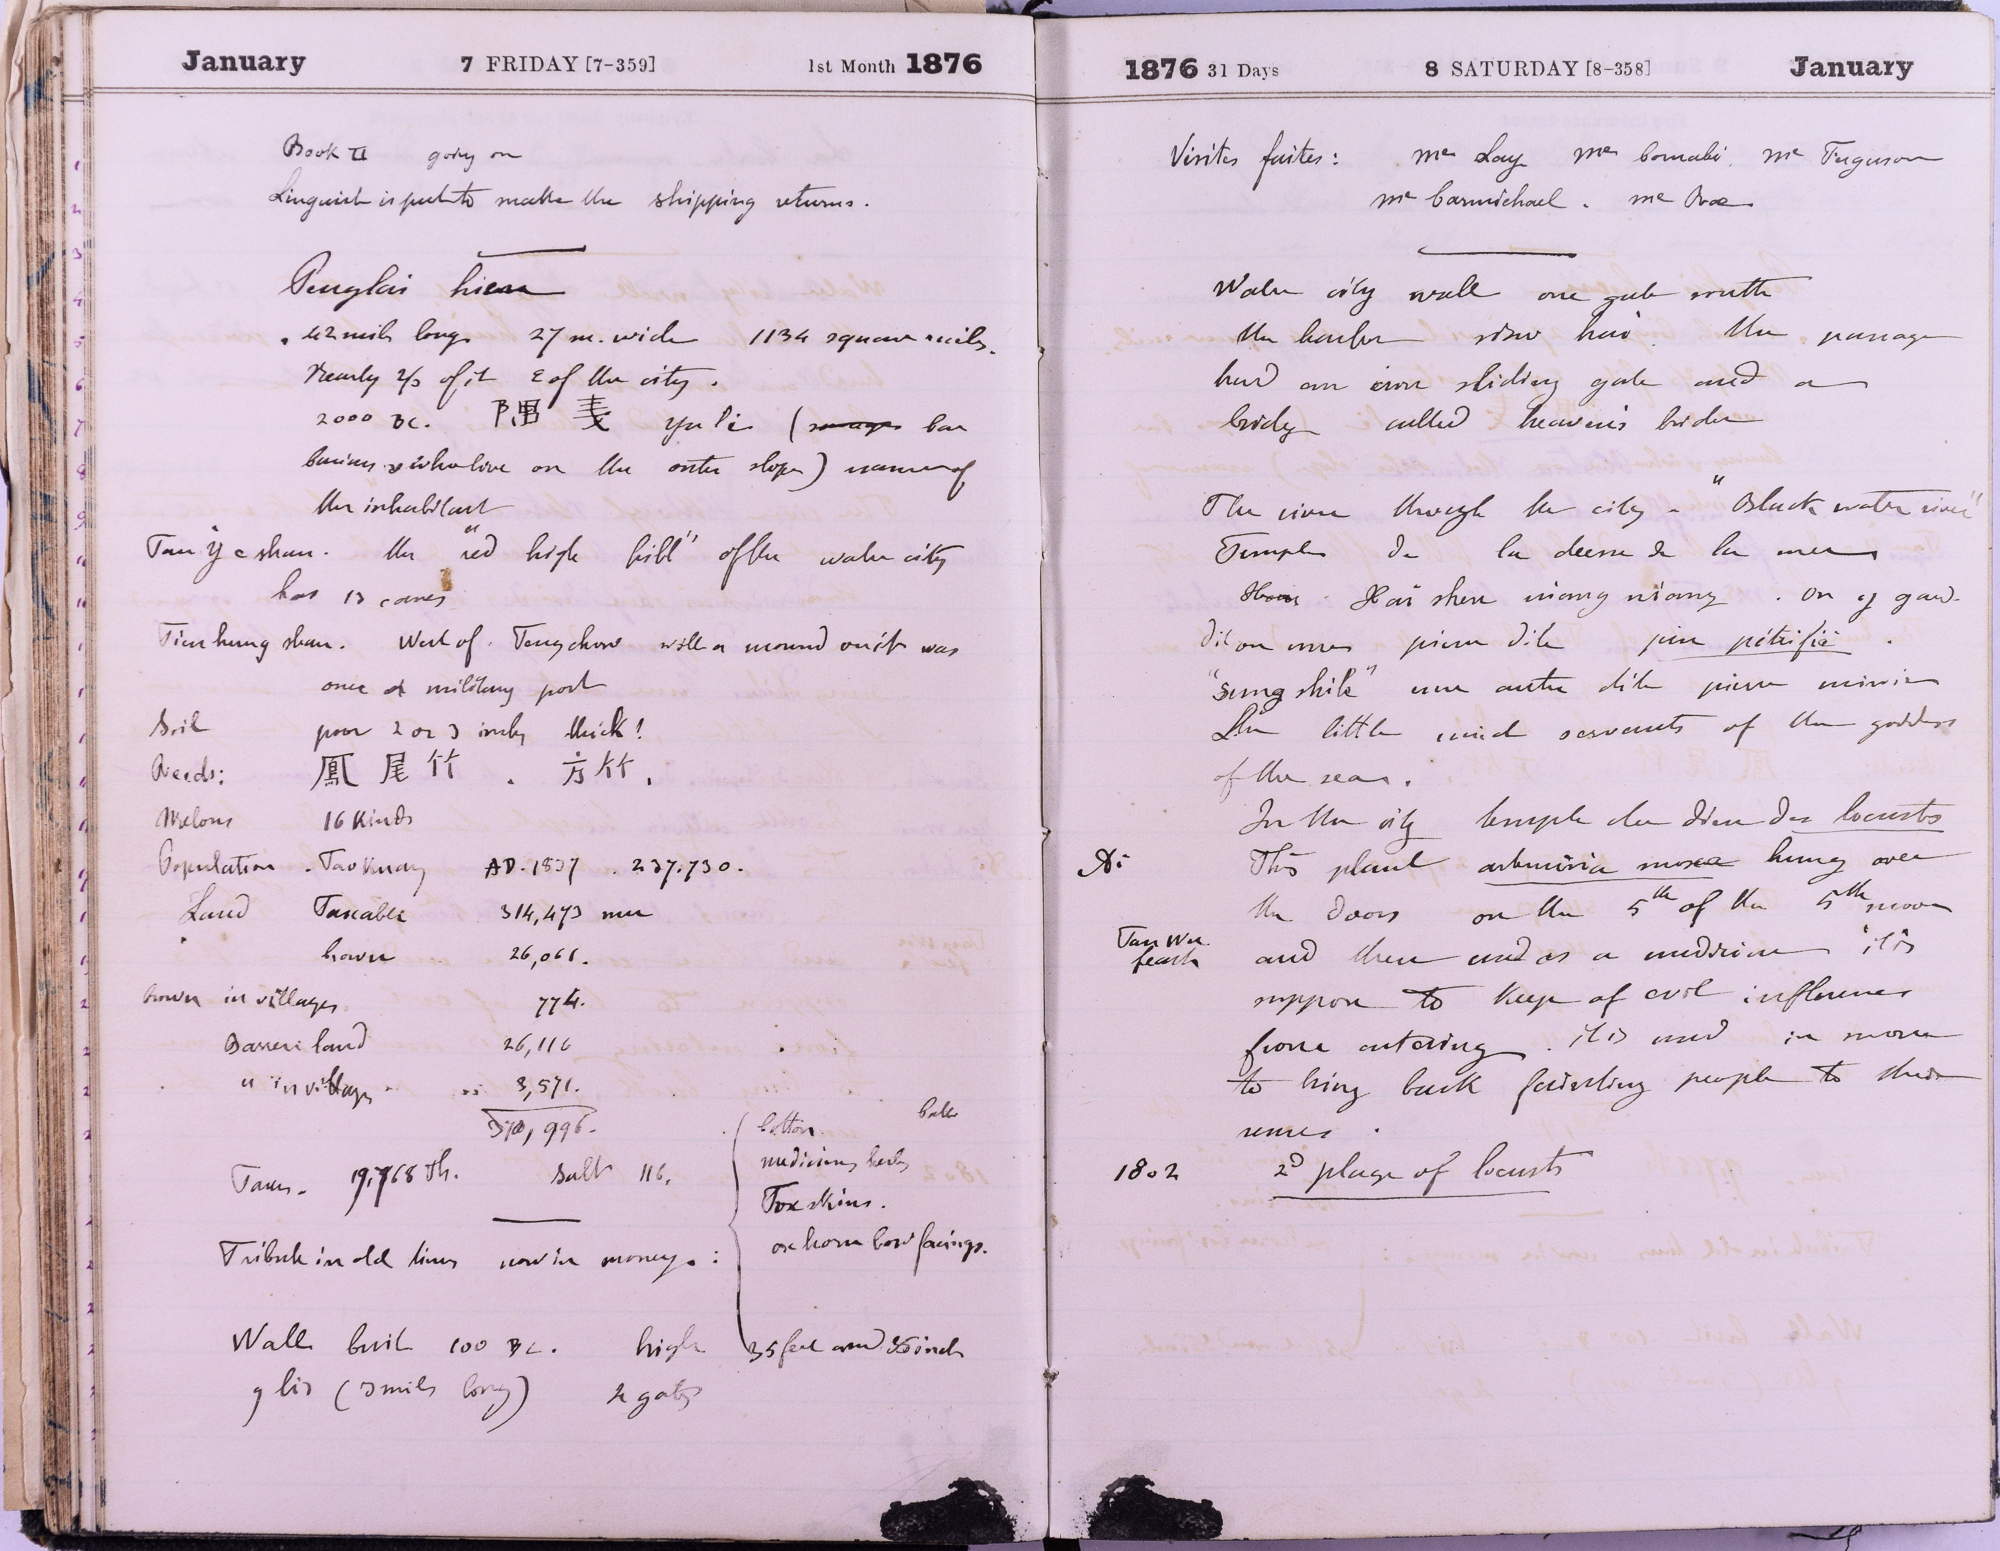 January 7 FRIDAY [7-359] 1st Month 1876
Book II going on
Linguist is put to make the shipping returns.
Penglai hien
42 mils long 27 m. wide 1134 square mils.
Nearly 2/3 of it E of the city.
2000 BC. 隅 夷 yu i (savages bar
barians who live on the outer slope) name of
the inhabitant
Tan ye shan. the "red high hill" of the water city
has 13 caves
Tien hung shan. West of Tengchow with a mound on it was
once a military post
Soil poor 2 or 3 inches thick!
Reeds: 鳳 尾 竹 . 方 竹 .
Melons 16 Kinds
Population . Taokuang AD. 1837 . 237.730.
Land Taxable 314,473 mu
26,061.
in villages 774.
Barren land 26,116
" in village 3,571.
996.
Taxes. Salt 116.
Tribute in old times now in money. :
Cotton.
medicinal herbs
Fox skins.
ox horn bow facings.
Wall built 100 BC. high 35 feet and inch
9 lis (3 mils long) 4 gates
1876 31 Days 8 SATURDAY [8-358] January
Visites faites : Mr Lay Mr Cornabé. Mr Ferguson
Mr Carmichael . Mr
Water city wall one gate south
the harbor siao hai. The passage
had an iron sliding gate and a
bridge called heaven's bridge
The river through the city - "Black water river"
Temple de la deesse de la mer
Hai shen niang niang . On y gar-
dit on une pierre dite pin pétrifié .
"Sung shih" une autre dite pierre miroir
The little maid servants of the goddess
of the sea.
In the city temple du dieu des locusts
Ai This plant artemisia moxa hung over
the doors on the 5th of the 5th moon
Tan Wu
feast and then used as a medicine it is
suppose to keep of evil influences
from entering . it is used in moxa
to bring back fainting people to their
senses .
1802 2d plage of locusts